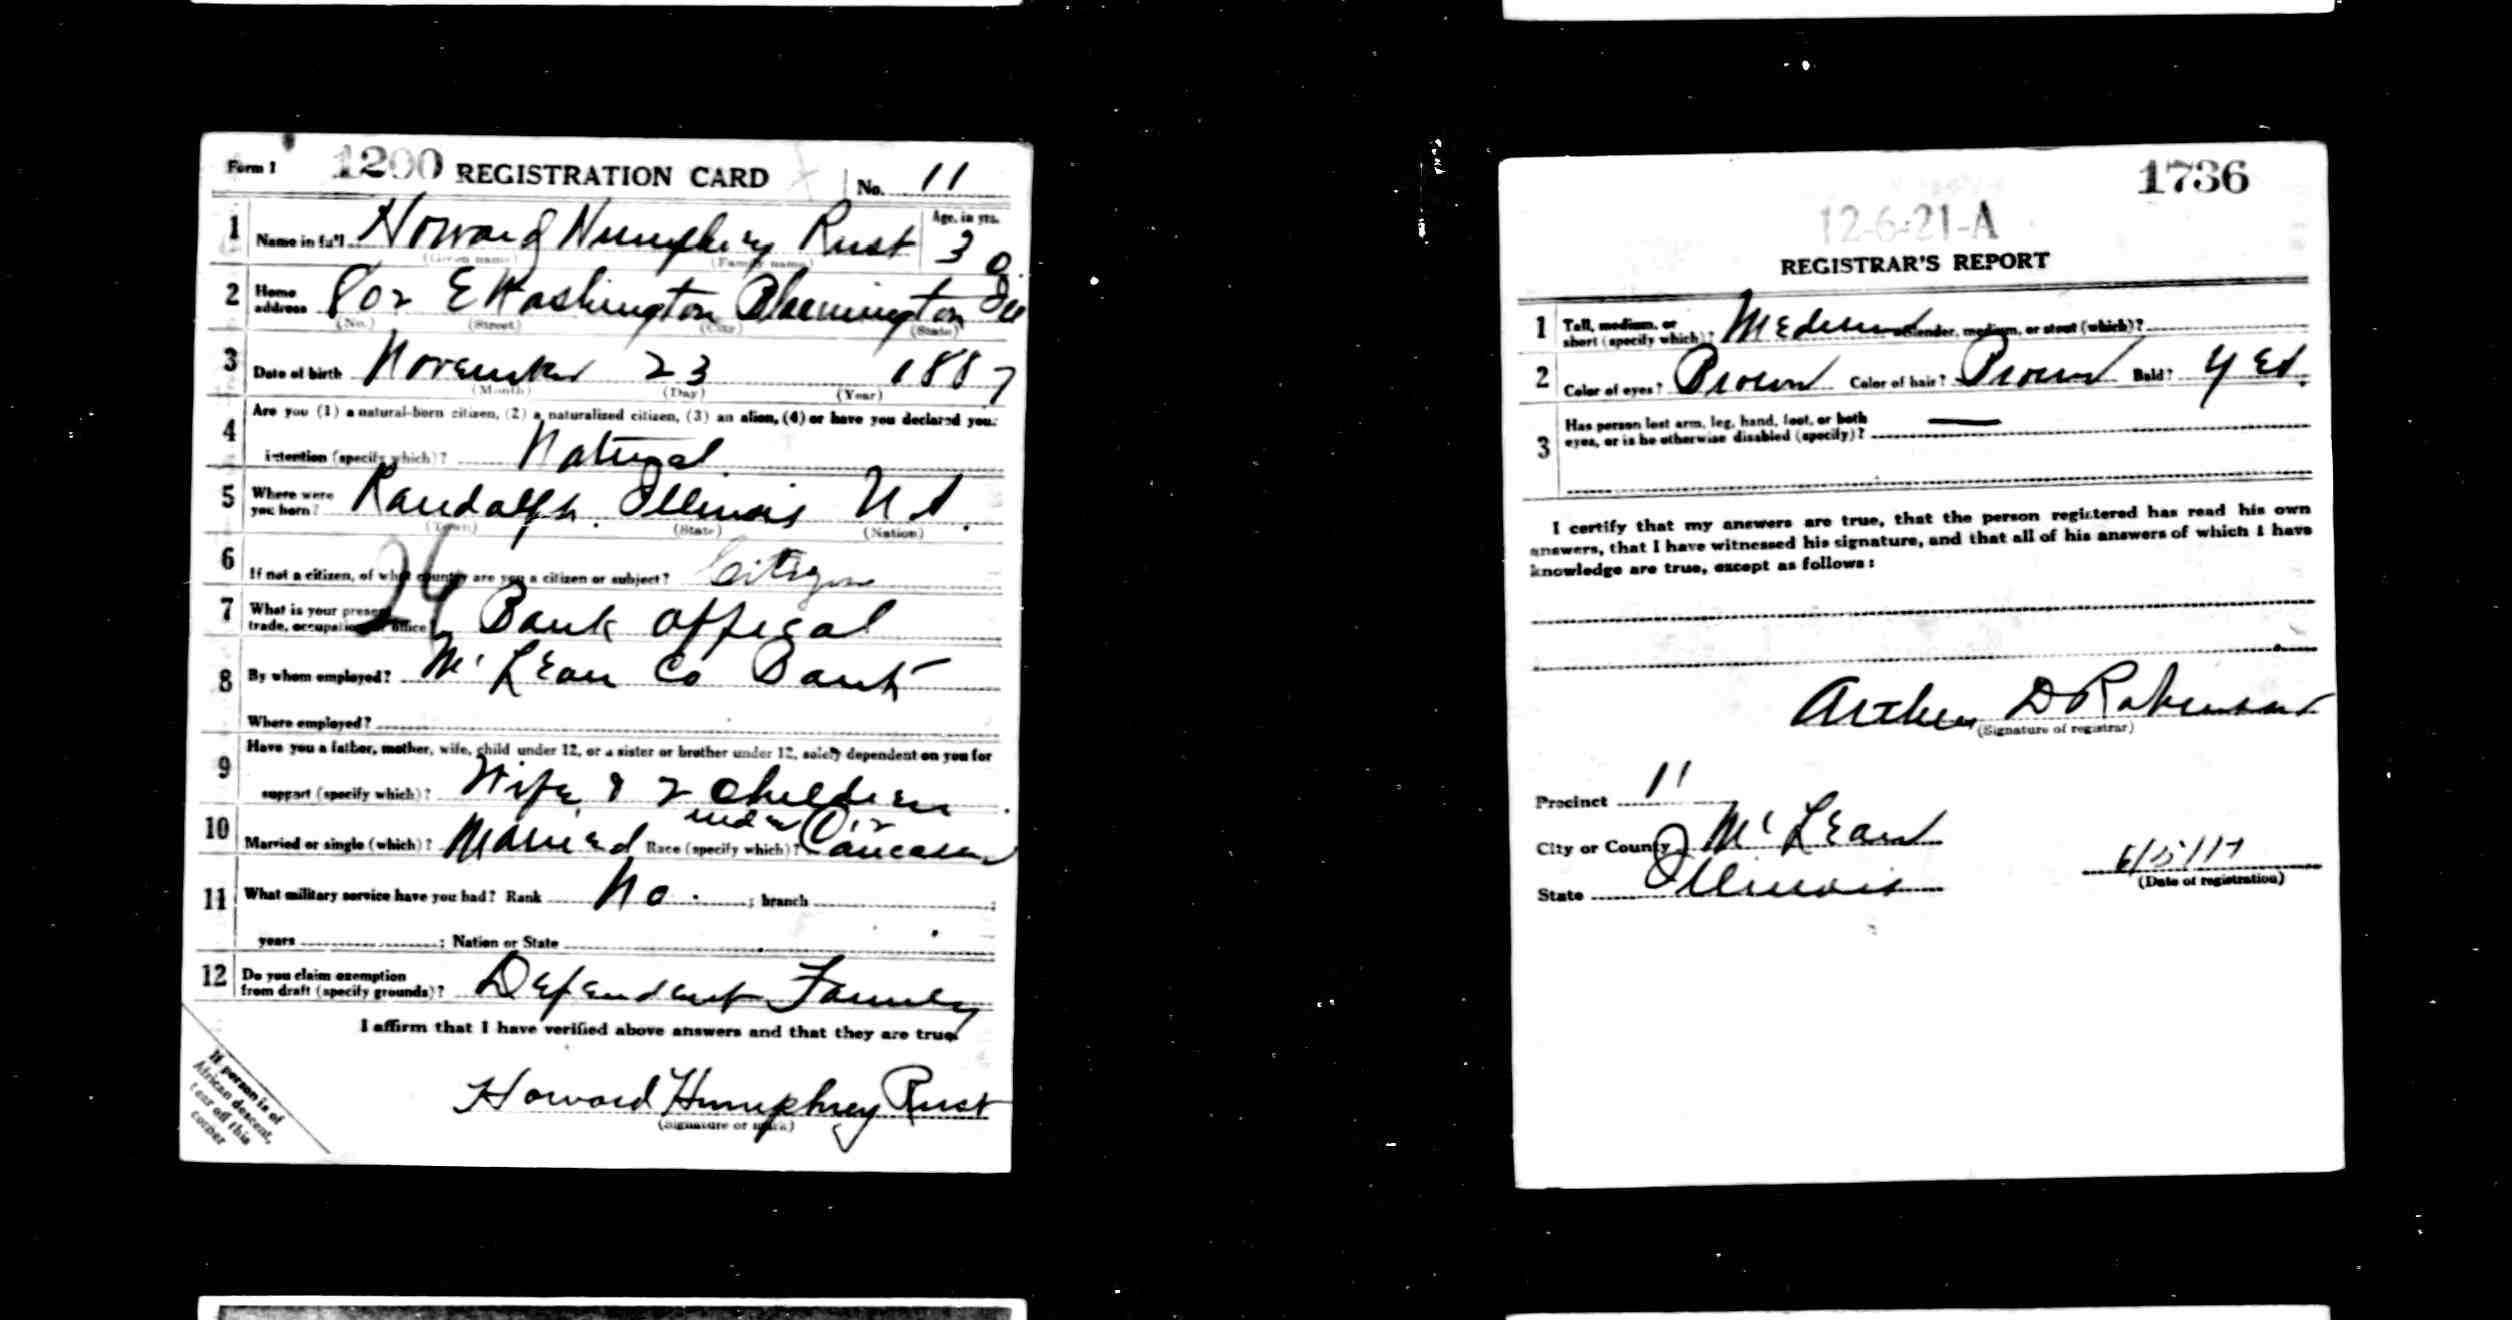 Form 1 1200 REGISTRATION CARD No. 11
1 Name in full Howard Humphrey Rust Age, in yrs. 30
(Given name) (Family name)
2 Home address 802 E Washington Bloomington Ill
(No.) (Street) (City) (State)
3 Date of birth November 23 1887
(Month) (Day) (Year)
4 Are you (1) a natural-born citizen, (2) a naturalized citizen, (3) an alien, (4) or have you declared your
intention (specify which)? Natural
5 Where were you born? Randolph Illinois U.S.
(Town) (State) (Nation)
6 If not a citizen, of what country are you a citizen or subject? Citizen
24
7 What is your present trade, occupation or office? Bank offical
8 By whom employed? Mc Lean Co Bank
Where employed?
9 Have you a father, mother, wife, child under 12, or a sister or brother under 12, solely dependent on you for
support (specify which)? Wife & 2 children
under 12
10 Married or single (which)? Married Race (specify which)? Caucasian
11 What military service have you had? Rank No ; branch ;
years ; Nation or State
12 Do you claim exemption from draft (specify grounds)? Dependent Family
I affirm that I have verified above answers and that they are true.
Howard Humphrey Rust
(Signature or mark)
If person is of
African descent,
tear off this
corner
1736
12-6-21-A
REGISTRAR'S REPORT
1 Tall, medium, or short (specify which)? Medium Slender, medium, or stout (which)?
2 Color of eyes? Brown Color of hair? Brown Bald? Yes.
3 Has person lost arm, leg, hand, foot, or both
eyes, or is he otherwise disabled (specify)? —
I certify that my answers are true, that the person registered has read his own
answers, that I have witnessed his signature, and that all of his answers of which I have
knowledge are true, except as follows:
Arthur D Robinson
(Signature of registrar)
Precinct 11
City or County Mc Lean
State Illinois 6/5/17
(Date of registration)